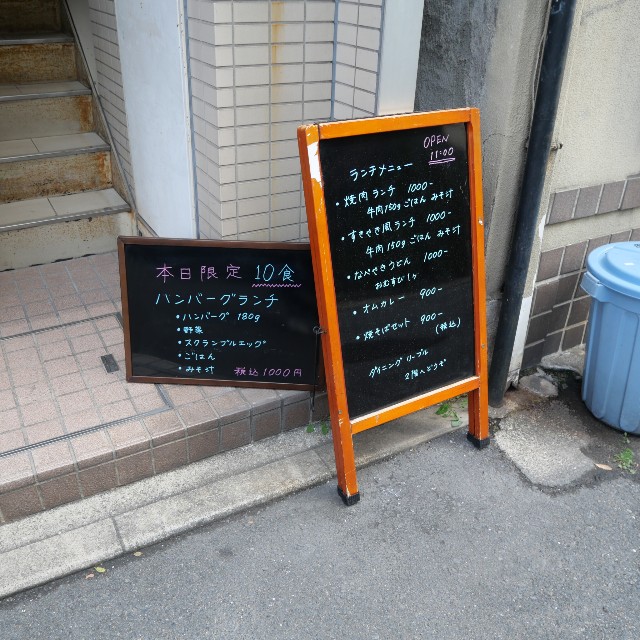 本日限定 10食
ハンバーグランチ
・ハンバーグ 180g
・野菜
・スクランブルエッグ
・ごはん
・みそ汁
税込1000円
OPEN
11:00
ランチメニュー
・焼肉ランチ 1000-
牛肉150g ごはん みそ汁
・すきやき風ランチ 1000-
牛肉150g ごはん みそ汁
・なべやきうどん 1000-
おむすび1ヶ
・オムカレー 900-
・焼そばセット 900- (税込)
ダイニング リーブル
2階へどうぞ